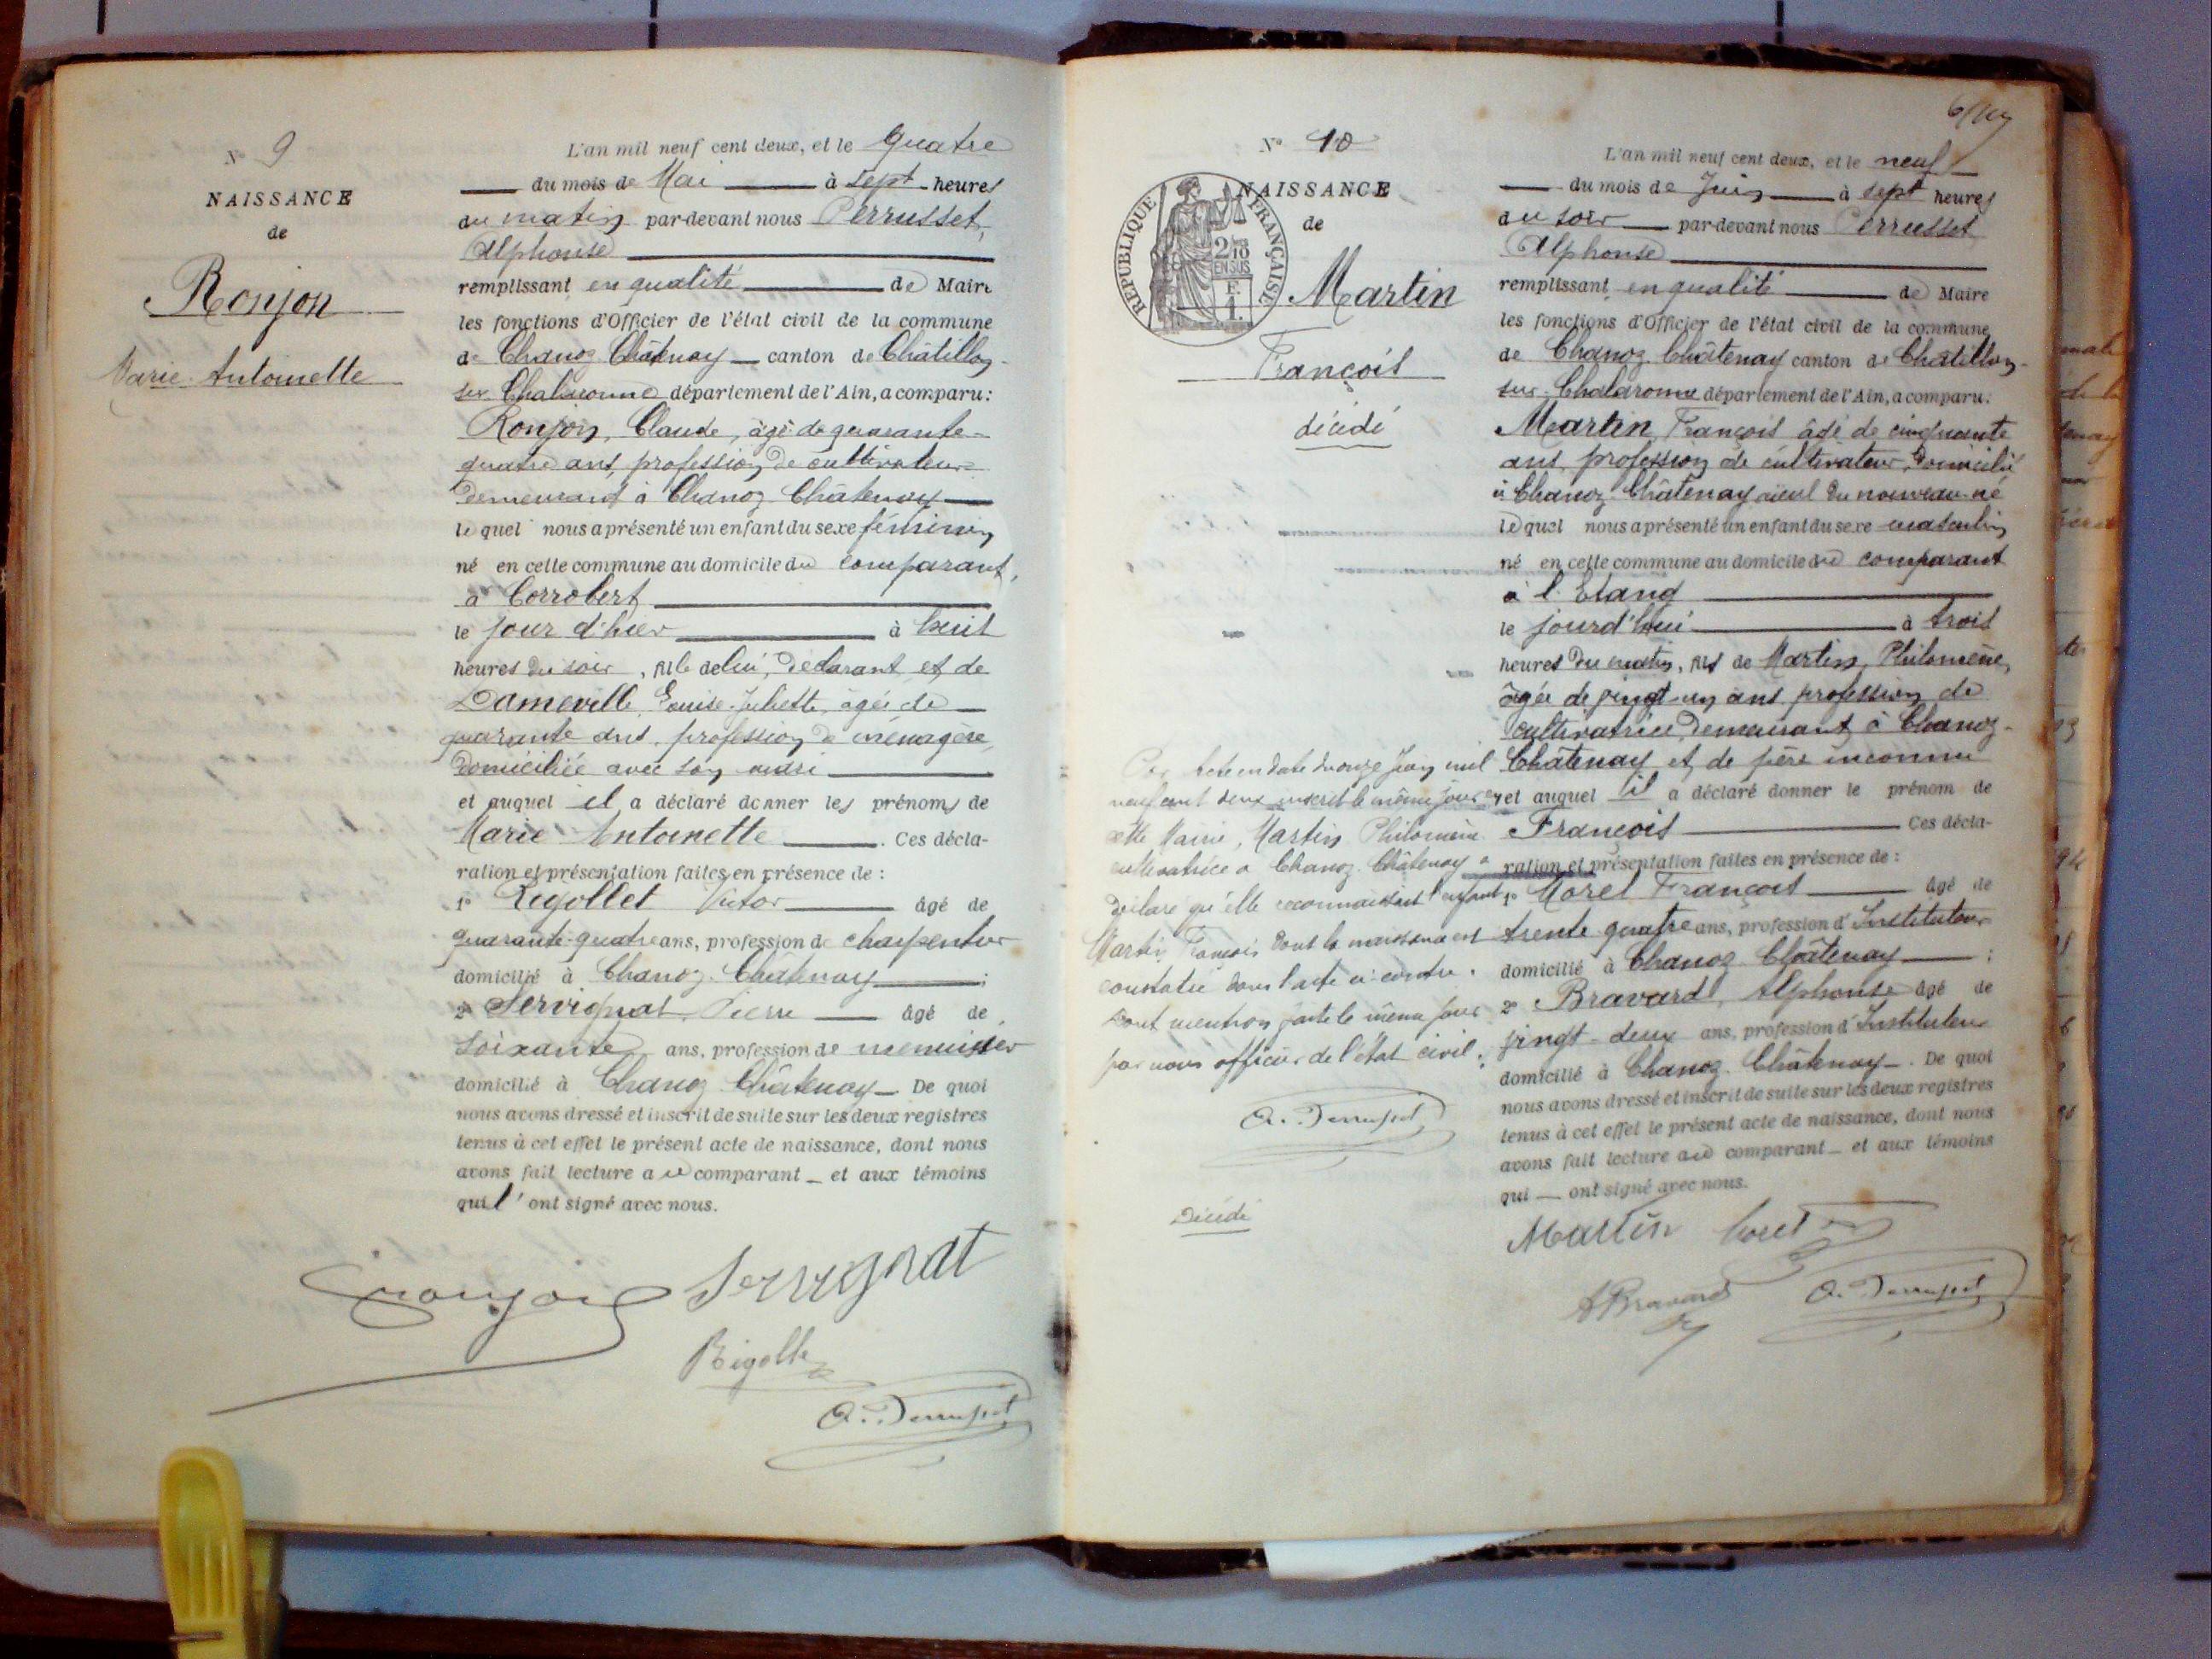 N° 9
NAISSANCE
de
Ronjon
Marie Antoinette
L'an mil neuf cent deux, et le Quatre
du mois de Mai à sept heures
du matin par-devant nous Perrusset,
Alphonse
remplissant en qualité de Maire
les fonctions d'Officier de l'état civil de la commune
de Chanoz Châtenay canton de Châtillon-
sur Chalaronne département de l'Ain, a comparu:
Ronjon, Claude, âgé de quarante-
quatre ans, profession de cultivateur
demeurant à Chanoz Châtenay
lequel nous a présenté un enfant du sexe féminin
né en cette commune au domicile du comparant,
à Corrobert
le jour d'hier à huit
heures du soir, fille de lui, déclarant et de
Dameville, Louise Juliette, âgée de
quarante ans, profession de ménagère,
domiciliée avec son mari
et auquel il a déclaré donner les prénoms de
Marie Antoinette. Ces décla-
ration et présentation faites en présence de :
1° Rigollet Victor âgé de
quarante-quatre ans, profession de charpentier
domicilié à Chanoz Châtenay ;
2° Servignat, Pierre âgé de
soixante ans, profession de menuisier
domicilié à Chanoz Châtenay. De quoi
nous avons dressé et inscrit de suite sur les deux registres
tenus à cet effet le présent acte de naissance, dont nous
avons fait lecture au comparant et aux témoins
qui l'ont signé avec nous.
Ronjon Servignat
Rigollet
A. Perrusset
N° 10
NAISSANCE
de
RÉPUBLIQUE FRANÇAISE
2/10
EN SUS
Martin
François
décédé
L'an mil neuf cent deux, et le neuf
du mois de Juin à sept heures
du soir par-devant nous Perrusset
Alphonse
remplissant en qualité de Maire
les fonctions d'Officier de l'état civil de la commune
de Chanoz Châtenay canton de Châtillon-
sur Chalaronne département de l'Ain, a comparu:
Martin, François âgé de cinquante
ans, profession de cultivateur, domicilié
à Chanoz Châtenay aïeul du nouveau-né
lequel nous a présenté un enfant du sexe masculin
né en cette commune au domicile du comparant
à l'Etang
le jourd'hui à trois
heures du matin, fils de Martin, Philomène,
âgée de vingt-un ans profession de
cultivatrice, demeurant à Chanoz-
Châtenay et de père inconnu
et auquel il a déclaré donner le prénom de
François Ces décla-
ration et présentation faites en présence de :
1° Morel François âgé de
trente quatre ans, profession d'Instituteur
domicilié à Chanoz Châtenay ;
2° Bravard, Alphonse âgé de
vingt-deux ans, profession d'Instituteur
domicilié à Chanoz Châtenay. De quoi
nous avons dressé et inscrit de suite sur les deux registres
tenus à cet effet le présent acte de naissance, dont nous
avons fait lecture au comparant et aux témoins
qui ont signé avec nous.
Par acte en date du onze Juin mil
neuf cent deux inscrit le même jour en
cette Mairie, Martin Philomène
cultivatrice à Chanoz Châtenay a
déclaré qu'elle reconnaissait l'enfant
Martin François dont la naissance est
constatée dans l'acte ci-contre.
Dont mention faite le même jour
par nous officier de l'état civil.
A. Perrusset
Décédé
Martin Morel
A Bravard A. Perrusset